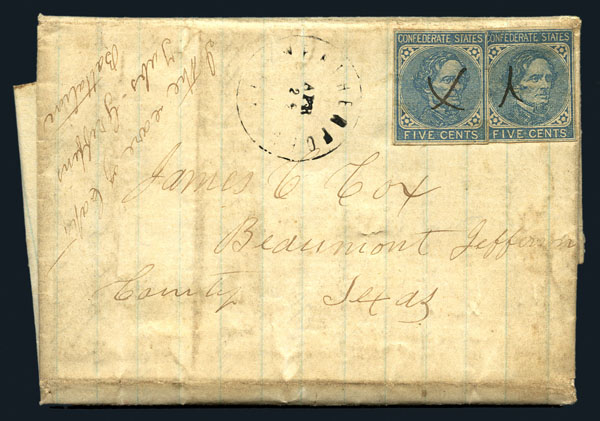 CONFEDERATE STATES
FIVE CENTS
CONFEDERATE STATES
FIVE CENTS
APR
James C Cox
Beaumont Jefferson
County Texas
care of Capn
Battalion